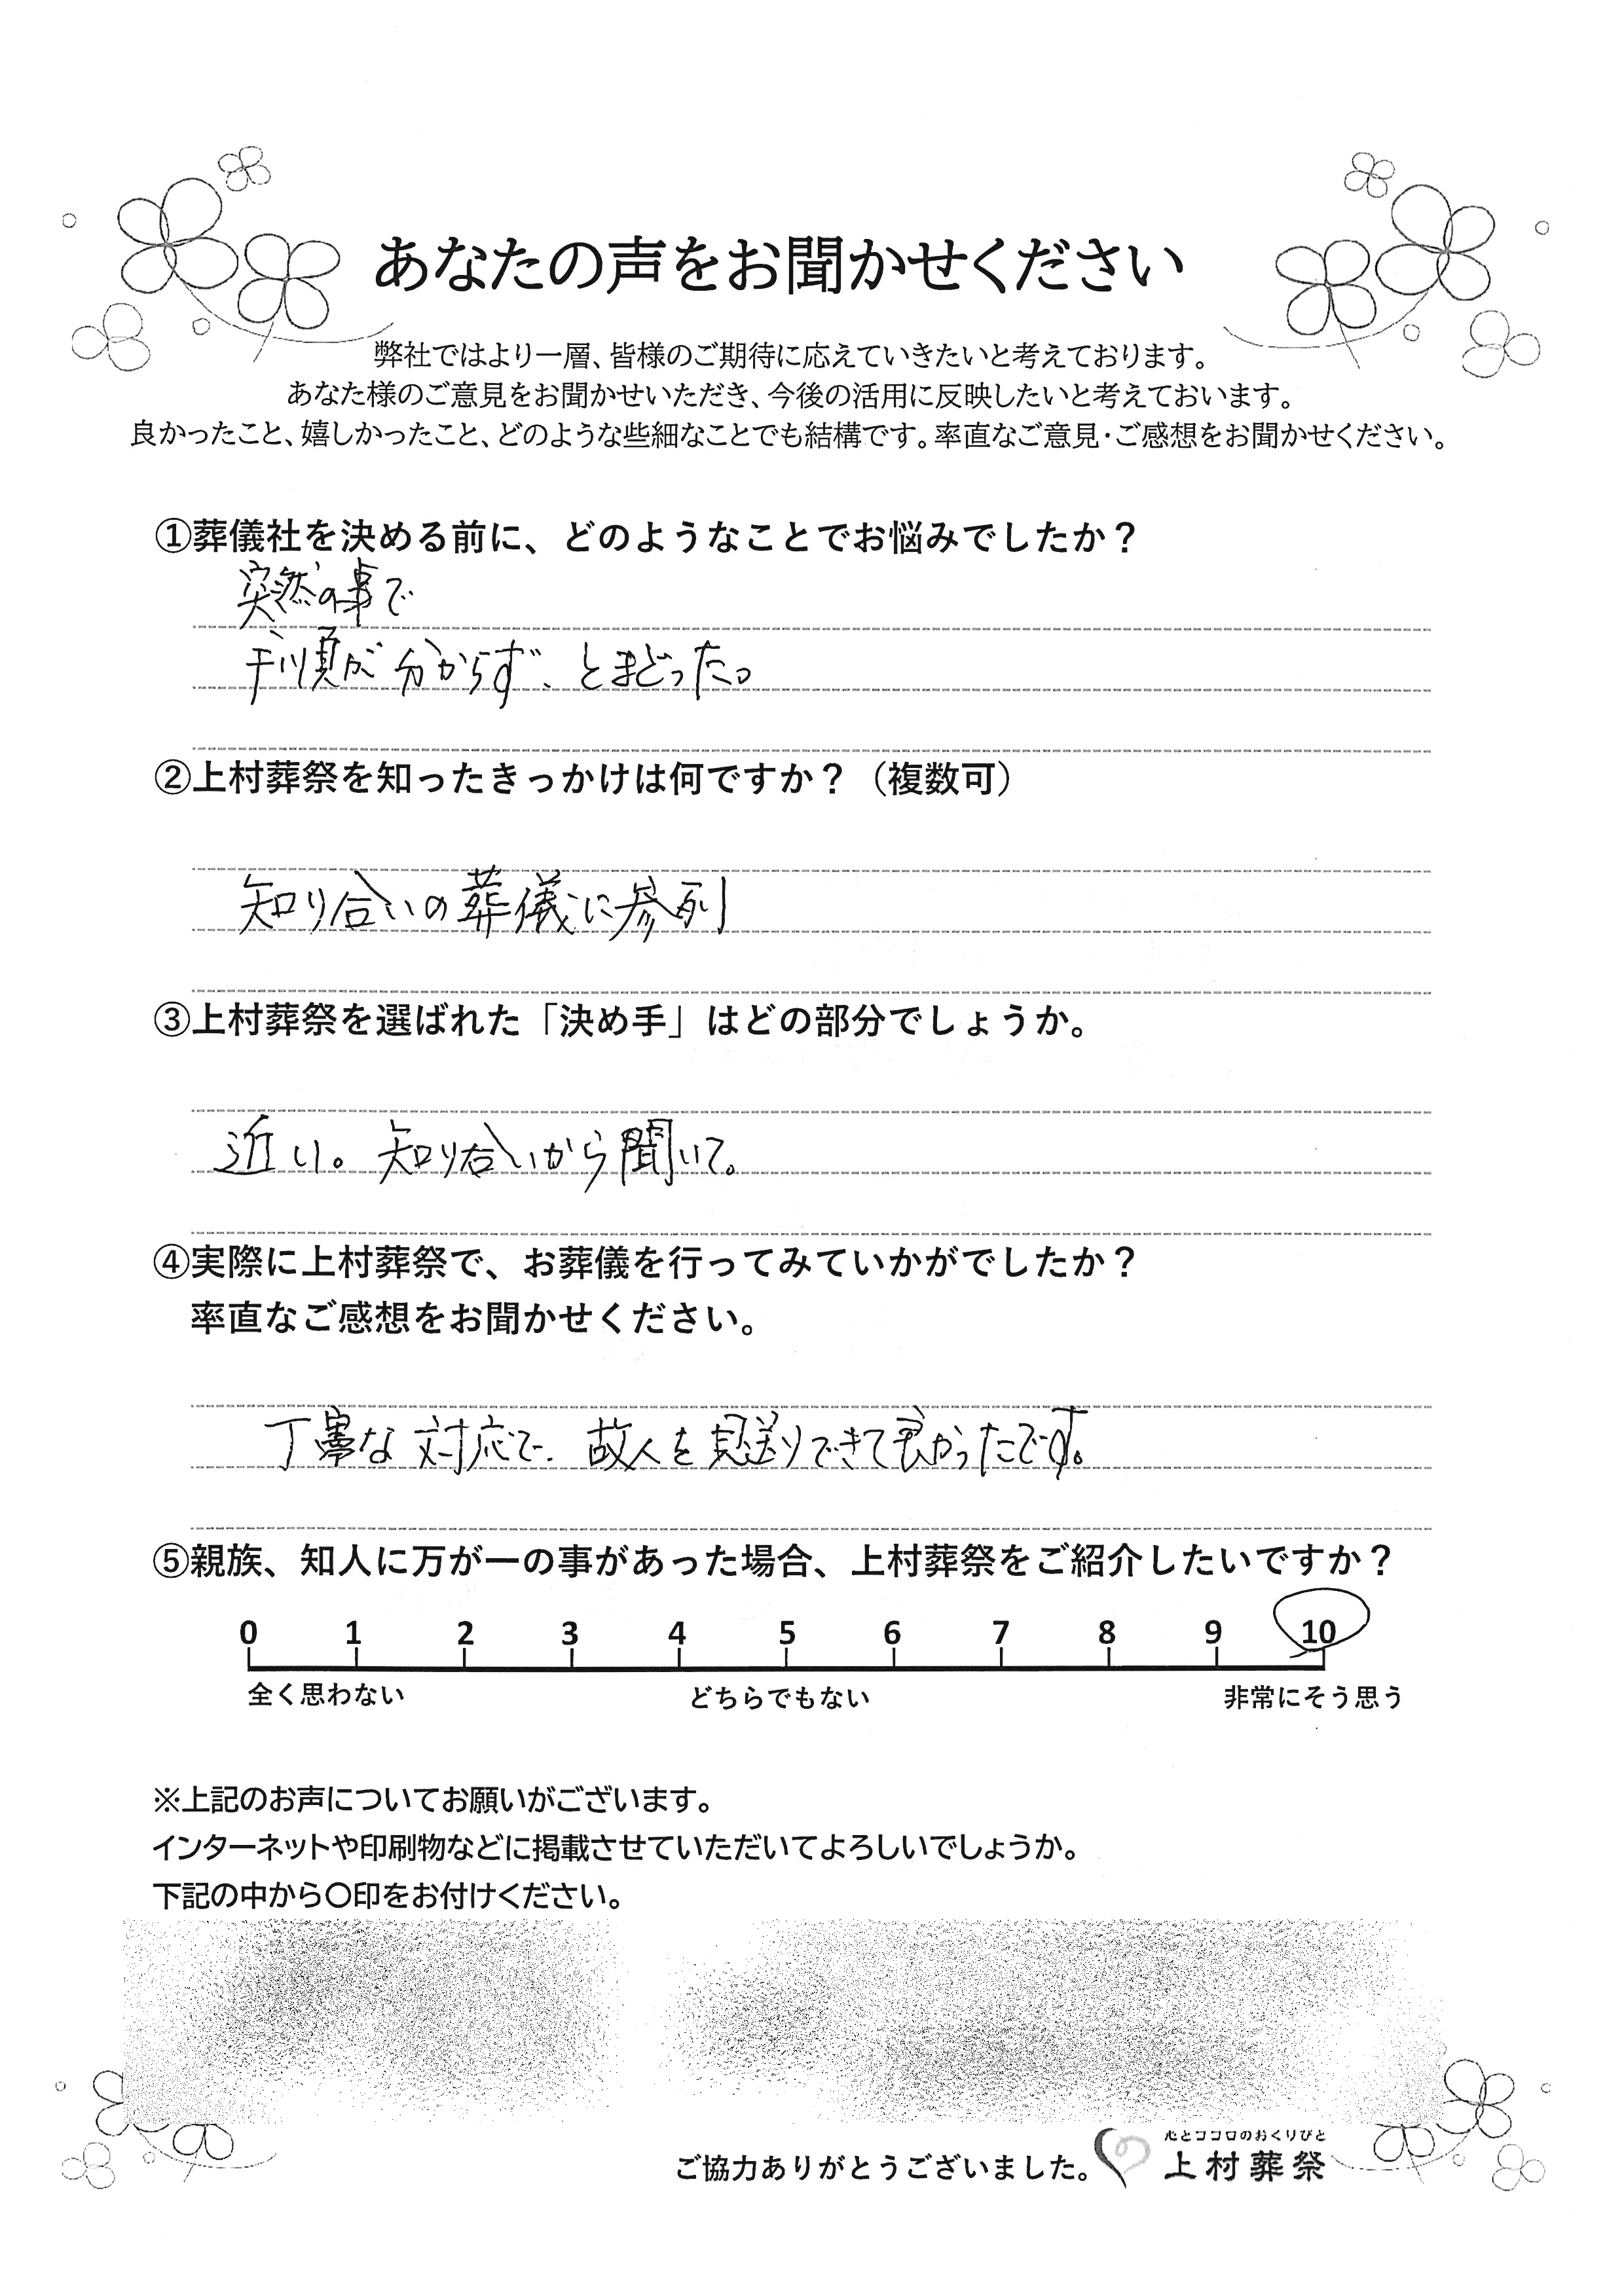 あなたの声をお聞かせください
弊社ではより一層、皆様のご期待に応えていきたいと考えております。
あなた様のご意見をお聞かせいただき、今後の活用に反映したいと考えておいます。
良かったこと、嬉しかったこと、どのような些細なことでも結構です。率直なご意見・ご感想をお聞かせください。
①葬儀社を決める前に、どのようなことでお悩みでしたか？
突然の事で
手順が分からず、とまどった。
②上村葬祭を知ったきっかけは何ですか？（複数可）
知り合いの葬儀に参列
③上村葬祭を選ばれた「決め手」はどの部分でしょうか。
近い。知り合いから聞いて。
④実際に上村葬祭で、お葬儀を行ってみていかがでしたか？
率直なご感想をお聞かせください。
丁寧な対応で、故人を見送りできて良かったです。
⑤親族、知人に万が一の事があった場合、上村葬祭をご紹介したいですか？
0 1 2 3 4 5 6 7 8 9 10
全く思わない どちらでもない 非常にそう思う
※上記のお声についてお願いがございます。
インターネットや印刷物などに掲載させていただいてよろしいでしょうか。
下記の中から〇印をお付けください。
心とココロのおくりびと
ご協力ありがとうございました。 上村葬祭